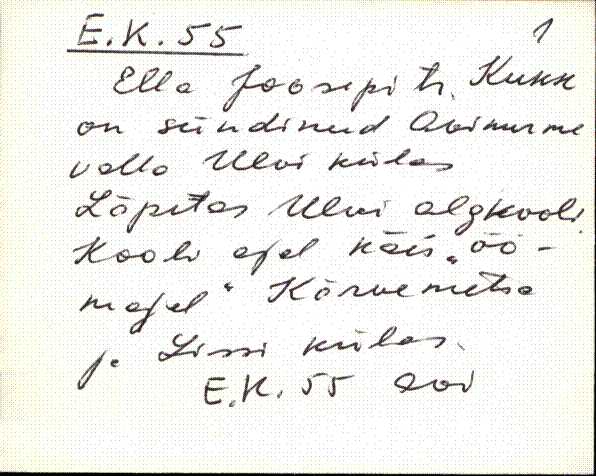 E.K. 55 1
Ella Joosepi tr. Kukk
on sündinud Avinurme
valla Ulvi külas
Lõpetas Ulvi algkooli.
Kooli ajal käis „öö-
majal“ Kõrvemetsa
ja Lissi külas.
E.K. 55 Avi